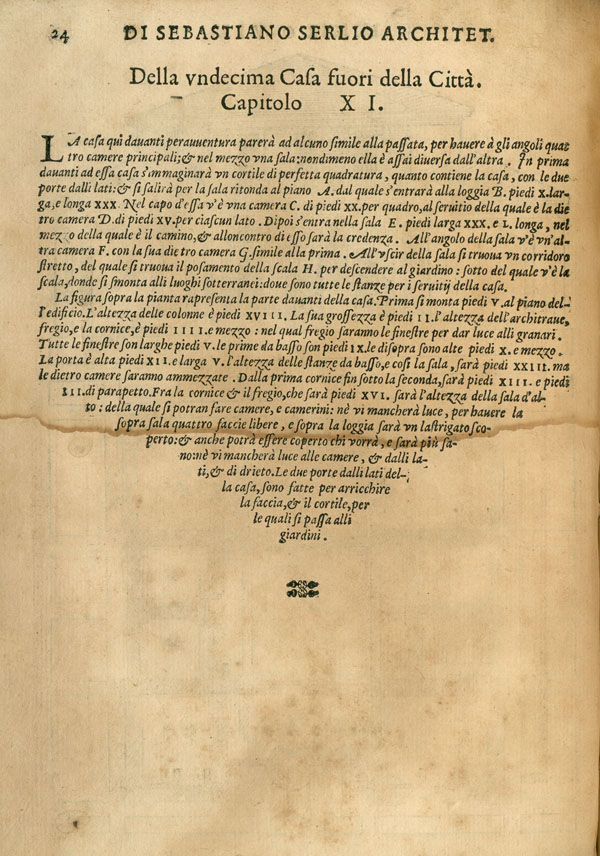 24 DI SEBASTIANO SERLIO ARCHITET.
Della vndecima Casa fuori della Città.
Capitolo XI.
LA casa quì dauanti perauuentura parerà ad alcuno simile alla passata, per hauere à gli angoli quat
tro camere principali;& nel mezzo vna sala:nondimeno ella è assai diuersa dall'altra. In prima
dauanti ad essa casa s'immaginarà vn cortile di perfetta quadratura, quanto contiene la casa, con le due
porte dalli lati:& si salirà per la scala ritonda al piano A. dal quale s'entrarà alla loggia B. piedi X.lar-
ga,e longa XXX. Nel capo d'essa v'è vna camera C. di piedi XX.per quadro,al seruitio della quale è la die
tro camera D. di piedi XV.per ciascun lato. Dipoi s'entra nella sala E. piedi larga XXX. e L. longa, nel
mezzo della quale è il camino,& alloncontro di esso sarà la credenza. All'angolo della sala v'è vn'al-
tra camera F. con la sua dietro camera G.simile alla prima. All'vscir della sala si truoua vn corridoro
stretto, del quale si truoua il posamento della scala H. per descendere al giardino: sotto del quale v'è la
scala,donde si smonta alli luoghi sotterranei:doue sono tutte le stanze per i seruitij della casa.
La figura sopra la pianta rapresenta la parte dauanti della casa. Prima si monta piedi V. al piano del-
l'edificio. L'altezza delle colonne è piedi XVIII. La sua grossezza è piedi II. l'altezza dell'architraue,
fregio,e la cornice,è piedi IIII.e mezzo: nel qual fregio saranno le finestre per dar luce alli granari.
Tutte le finestre son larghe piedi V. le prime da basso son piedi IX.le disopra sono alte piedi X. e mezzo.
La porta è alta piedi XII.e larga V. l'altezza delle stanze da basso,e cosi la sala, sarà piedi XXIII. ma
le dietro camere saranno ammezzate. Dalla prima cornice fin sotto la seconda,sarà piedi XIII. e piedi
III.di parapetto.Fra la cornice & il fregio,che sarà piedi XVI. sarà l'altezza della sala d'al-
to: della quale si potran fare camere, e camerini: nè vi mancherà luce, per hauere la
sopra sala quattro faccie libere, e sopra la loggia sarà vn lastrigato sco-
perto:& anche potrà essere coperto chi vorrà, e sarà più sa-
no:nè vi mancherà luce alle camere, & dalli la-
ti,& di drieto.Le due porte dalli lati del-
la casa,sono fatte per arricchire
la faccia,& il cortile,per
le quali si passa alli
giardini.